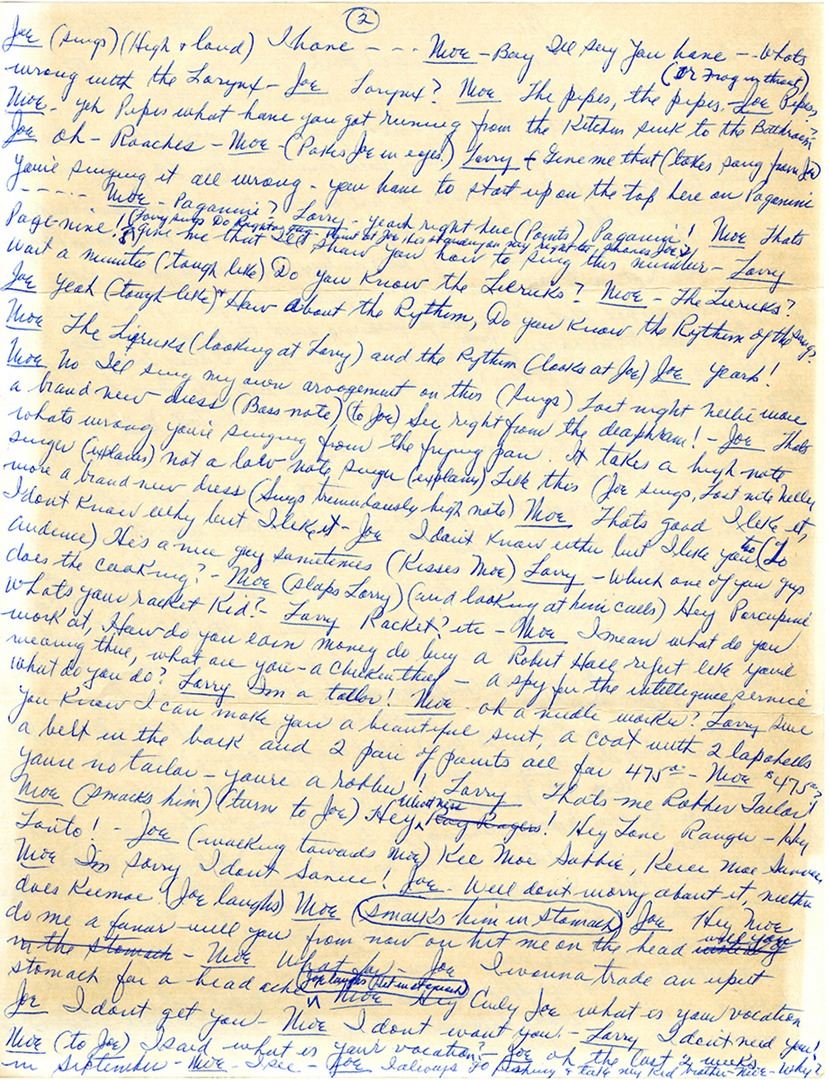 2
Joe (sings) (High & loud) I have - - - Moe - Boy I'll say you have - - Whats
(or Frog in throat)
wrong with the Larynx - Joe Larynx? Moe The pipes, the pipes. Joe Pipes?
Moe. yeh Pipes what have you got running from the Kitchen sink to the Bathroom?
Joe oh - Roaches - Moe - (Pokes Joe in eyes) Larry & Give me that (takes song from Joe)
You're singing it all wrong - you have to start up on the top here on Paganini
- - - - - Moe - Paganini? Larry - yeah right here (Points) Paganini! Moe Thats
Page-nine!, give me that I'll show you how to sing this number - Larry
wait a minute (tough like) Do you Know the Liericks? Moe - The Liericks?
Joe Yeah (tough like) & How about the Rythum, Do you Know the Rythum of the song?
Moe The Liericks (looking at Larry) and the Rythm (looks at Joe) Joe Yeark!
Moe no I'll sing my own arragement on this (sings) Last night nellie wore
a brand new dress (Bass note) (to Joe) See right from the deaphram! - Joe Thats
whats wrong you're singing from the frying pan. It takes a high note
singer (explains) not a low note singer (explains) Like this (Joe sings, Last nite Nelly
wore a brand new dress (Sings tremenduously high note) Moe Thats good I like it,
I dont Know why but I like it - Joe I don't Know either but I like you too (To
audience) He's a nice guy sometimes (Kisses Moe) Larry - Which one of you guys
does the cooking? - Moe (slaps Larry) (and looking at him calls) Hey Porcupine
whats your racket Kid? - Larry Racket? etc - Moe I mean what do you
work at, How do you earn money do buy a Robert Hall reject like you're
wearing there, what are you - a chicken thief - a spy for the intelligence service
what do you do? Larry I'm a tailor! Moe oh a needle worker? Larry Sure
you Know I can make you a beautiful suit, a coat with 2 lapshells
a belt in the back and 2 pair of pants all for 475.00 - Moe $475.00?
you're no tailor - you're a robber! Larry Thats me Robber Tailor!
Moe (smacks him) (turn to Joe) Hey, Roy Rogers! Hey Lone Ranger - Hey
Tonto! - Joe (walking towards Moe) Kee Moe Sabbie, Keee Moe
Moe I'm sorry I don't Savvee! Joe. Well don't worry about it, neither
does Keemoe (Joe laughs) Moe (smacks him in stomach) Joe Hey Moe
do me a favor will you from now on hit me on the head instead of
in the stomach - Moe What for - Joe I wanna trade an upset
stomach for a head ache (Joe laughs) (hit in stomach) Moe Hey Curly Joe what is your vocation
Joe I dont get you - Moe I dont want you! - Larry I don't need you!
Moe (to Joe) I said what is your vocation? - Joe oh the last 2 weeks
in September - Moe. I see - Joe I always go fishing & take my Kid brother - Moe - Why?